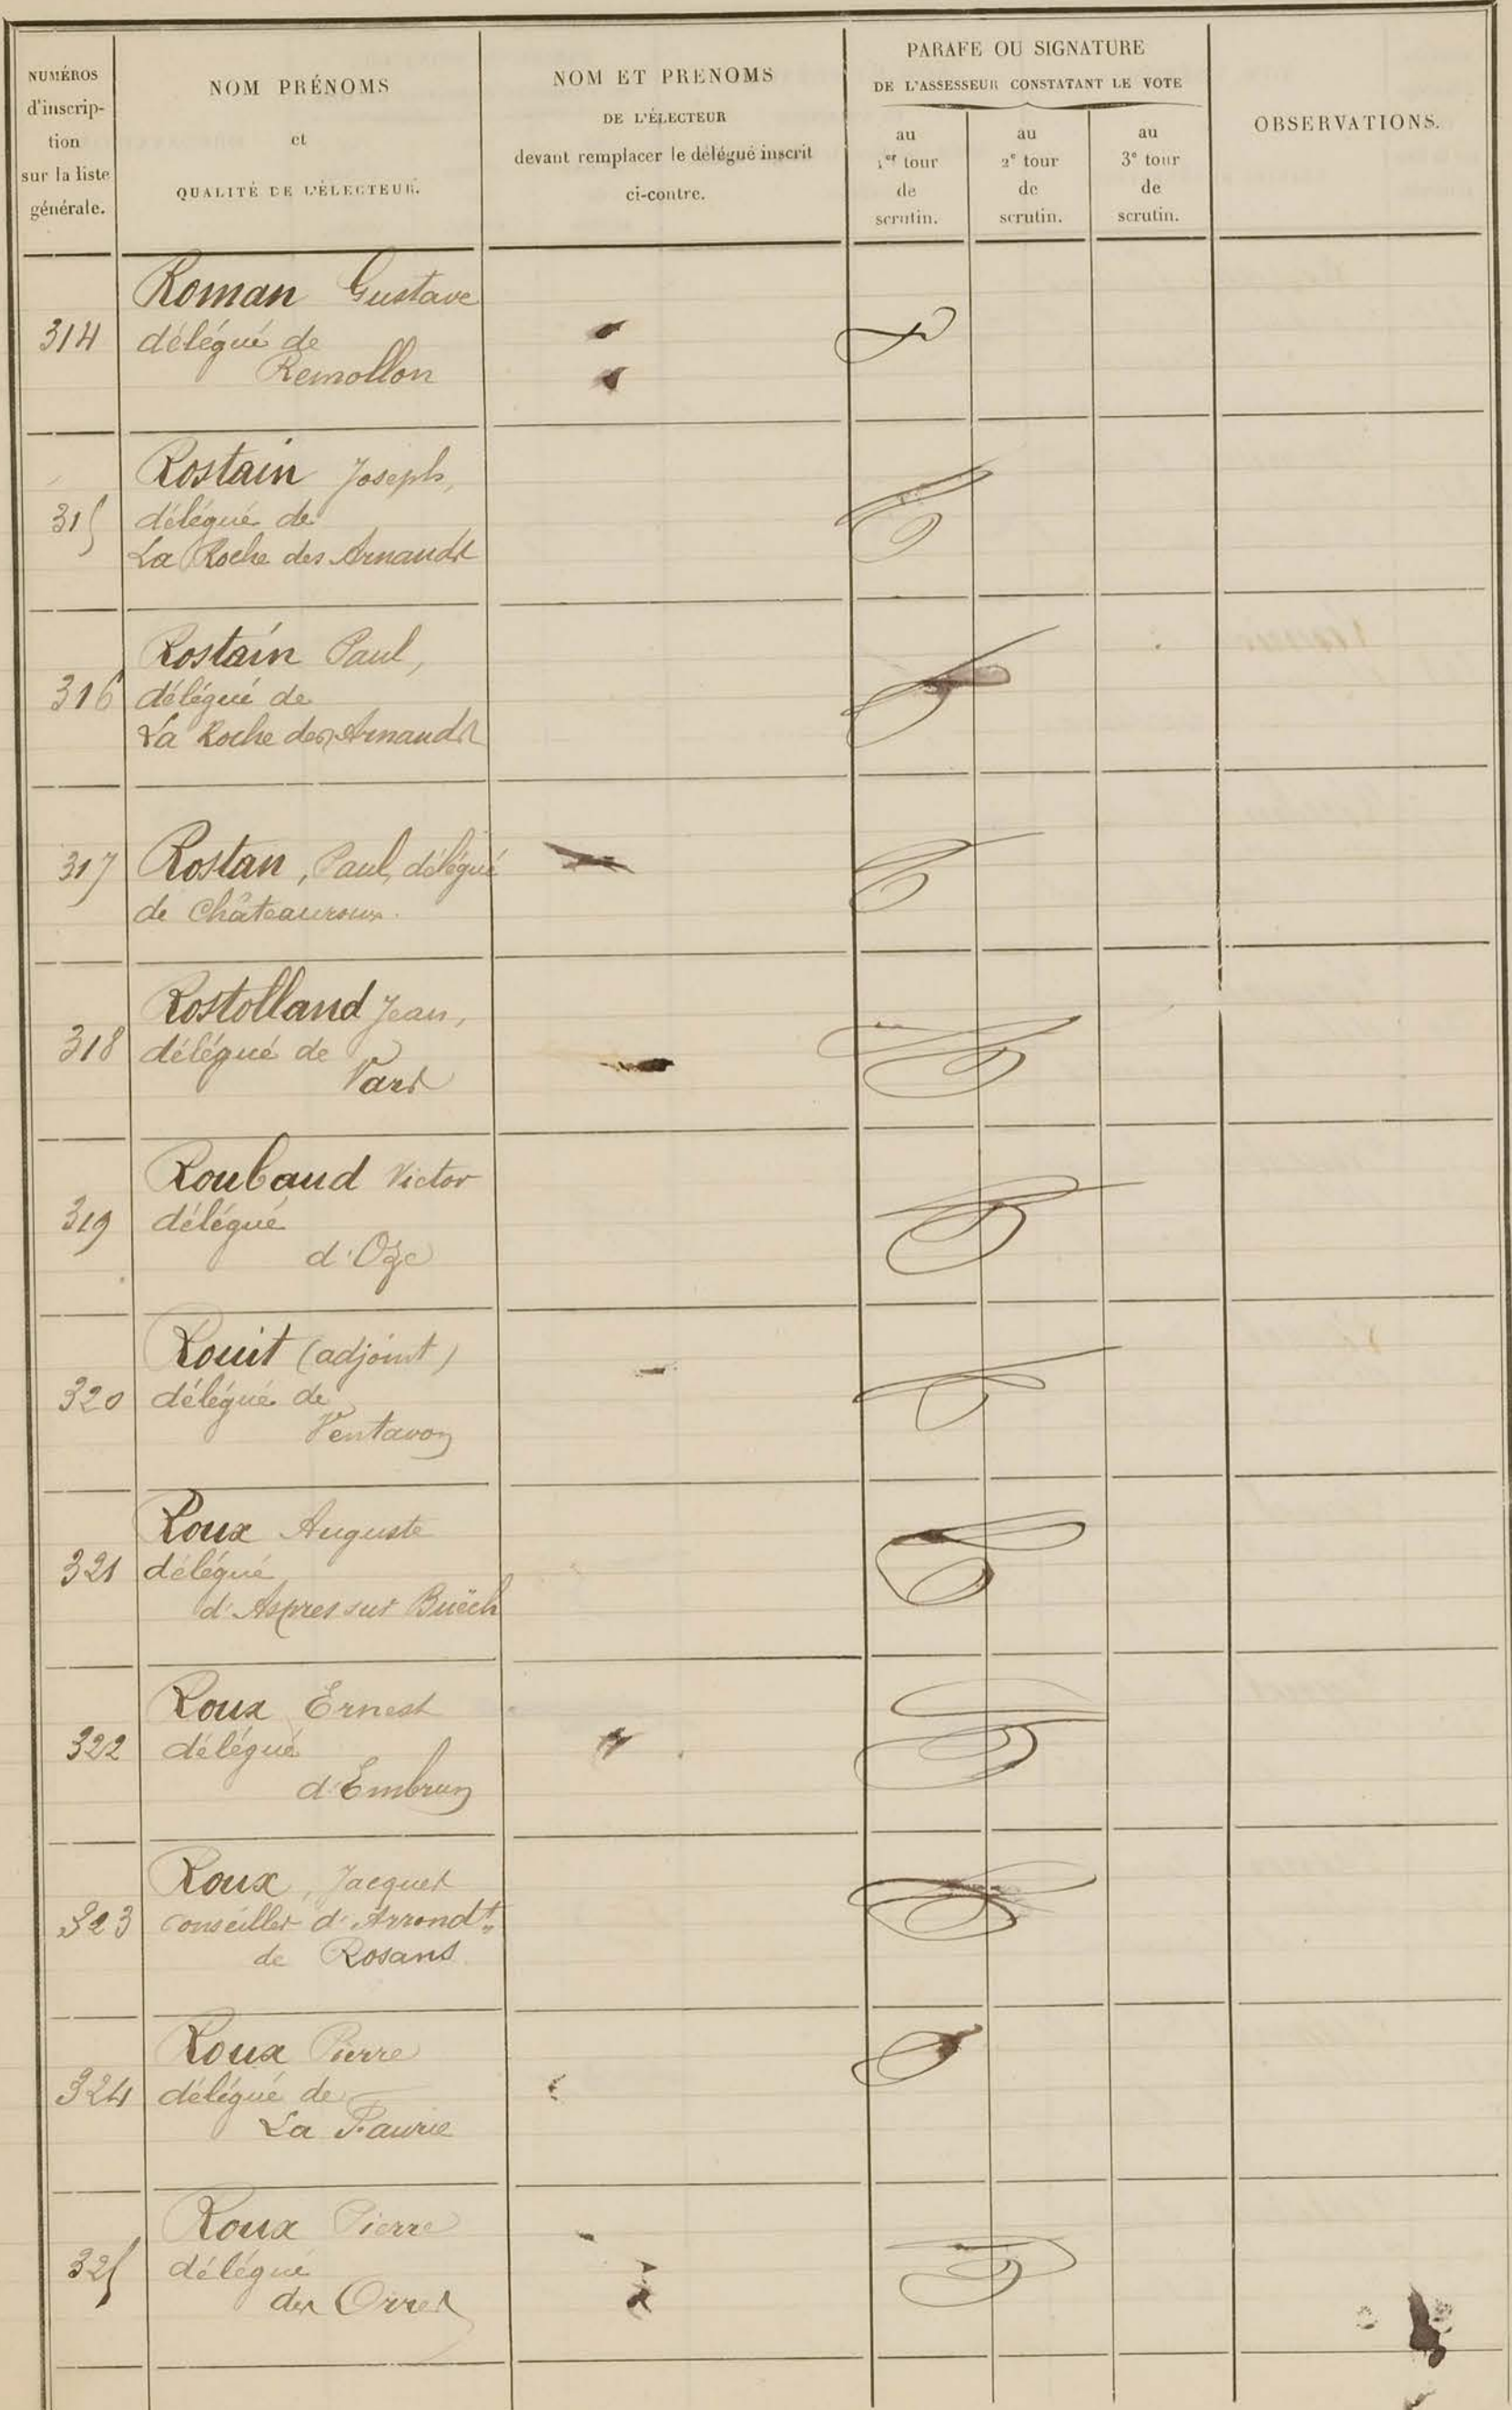 NUMÉROS
d'inscrip-
tion
sur la liste
générale.
NOM PRÉNOMS
et
QUALITÉ DE L'ÉLECTEUR.
NOM ET PRENOMS
DE L'ÉLECTEUR
devant remplacer le délégué inscrit
ci-contre.
PARAFE OU SIGNATURE
DE L'ASSESSEUR CONSTATANT LE VOTE
au
1er tour
de
scrutin.
au
2e tour
de
scrutin.
au
3e tour
de
scrutin.
OBSERVATIONS.
Roman Gustave
314 délégué de
Remollon
Rostain Joseph,
315 délégué de
La Roche des Arnauds
Rostain Paul,
316 délégué de
La Roche des Arnauds
317 Rostan, Paul, délégué
de Châteauroux.
Rostolland Jean,
318 délégué de
Vars
Roubaud Victor
319 délégué
d'Oze
Rouit (adjoint)
320 délégué de
Ventavon
Roux Auguste
321 délégué
d'Aspres sur Buëch
Roux Ernest
322 délégué
d'Embrun
Roux, Jacques
323 conseiller d'Arrondt
de Rosans
Roux Pierre
324 délégué de
La Faurie
Roux Pierre
325 délégué
des Orres